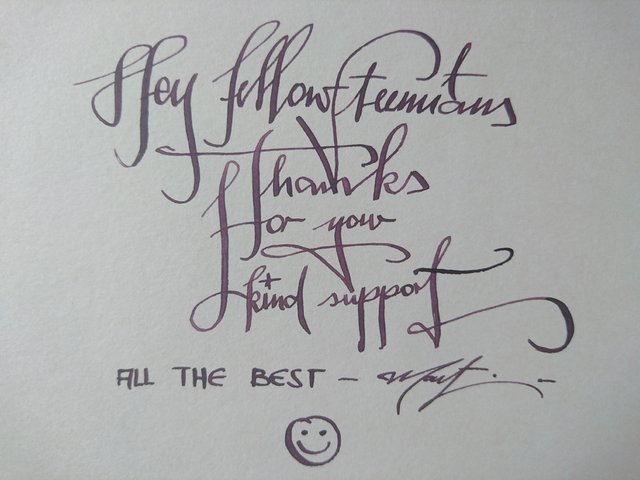 Hey fellow Steemians
Thanks
for your
kind support
ALL THE BEST –